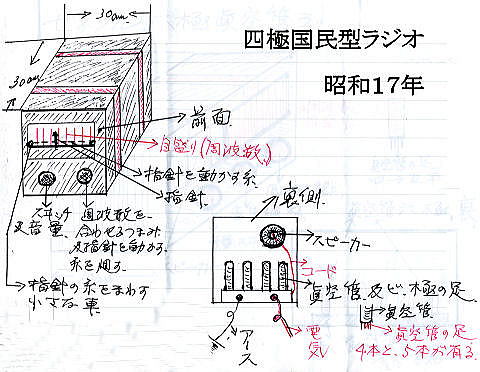 30cm
30cm
四極国民型ラジオ
昭和17年
前面
目盛り(周波数)
指針を動かす糸
指針
スイッチ
及音量
周波数を
合わせるつまみ
及指針を動かす
糸を廻す
指針の糸をまわす
小さな車
裏側
スピーカー
コード
真空管及び、極の足
真空管
真空管の足
4本と、5本が有る
アース
電気